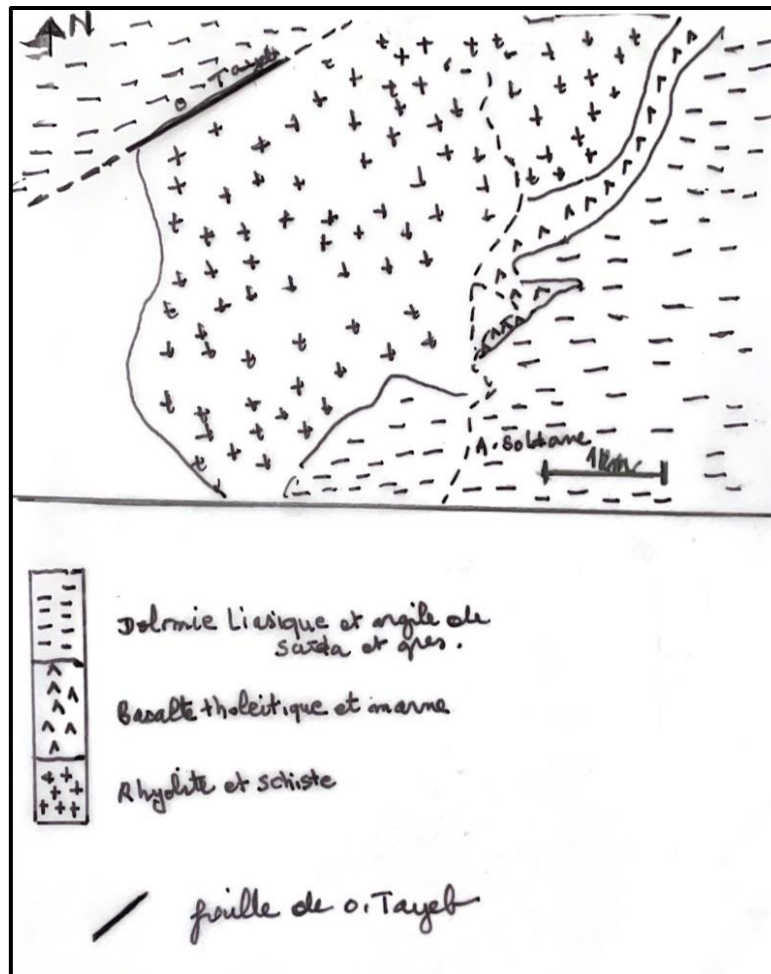 N
O Tayeb
A. Soltane
1km
Dolmie Liasique et argile de
saïda et gres.
Basalte tholeitique et marne
Rhyolite et schiste
faille de o. Tayeb